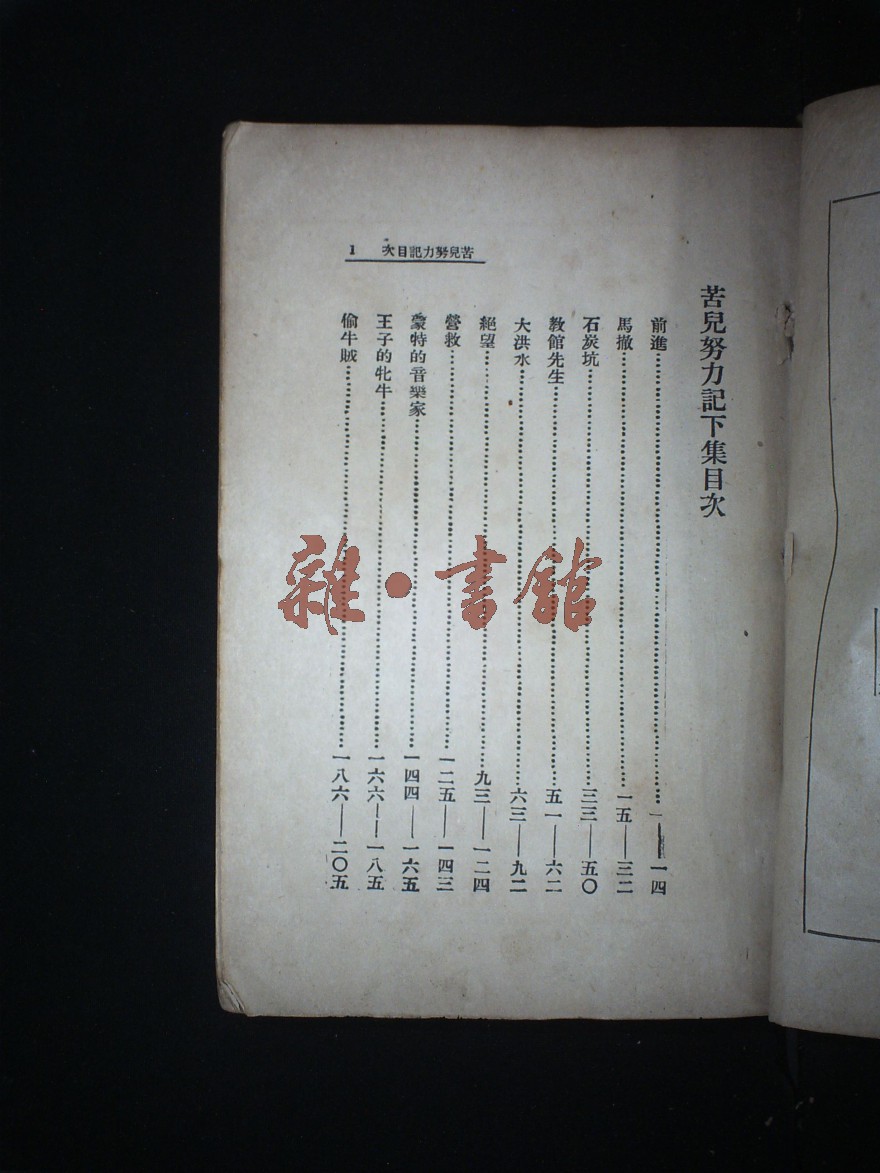 苦兒努力記目次　1
苦兒努力記下集目次
前進……一——一四
馬撒……一五——三二
石炭坑……三三——五〇
教館先生……五一——六二
大洪水……六三——九二
絕望……九三——一二四
營救……一二五——一四三
蒙特的音樂家……一四四——一六五
王子的牝牛……一六六——一八五
偷牛賊……一八六——二〇五
雜·書館